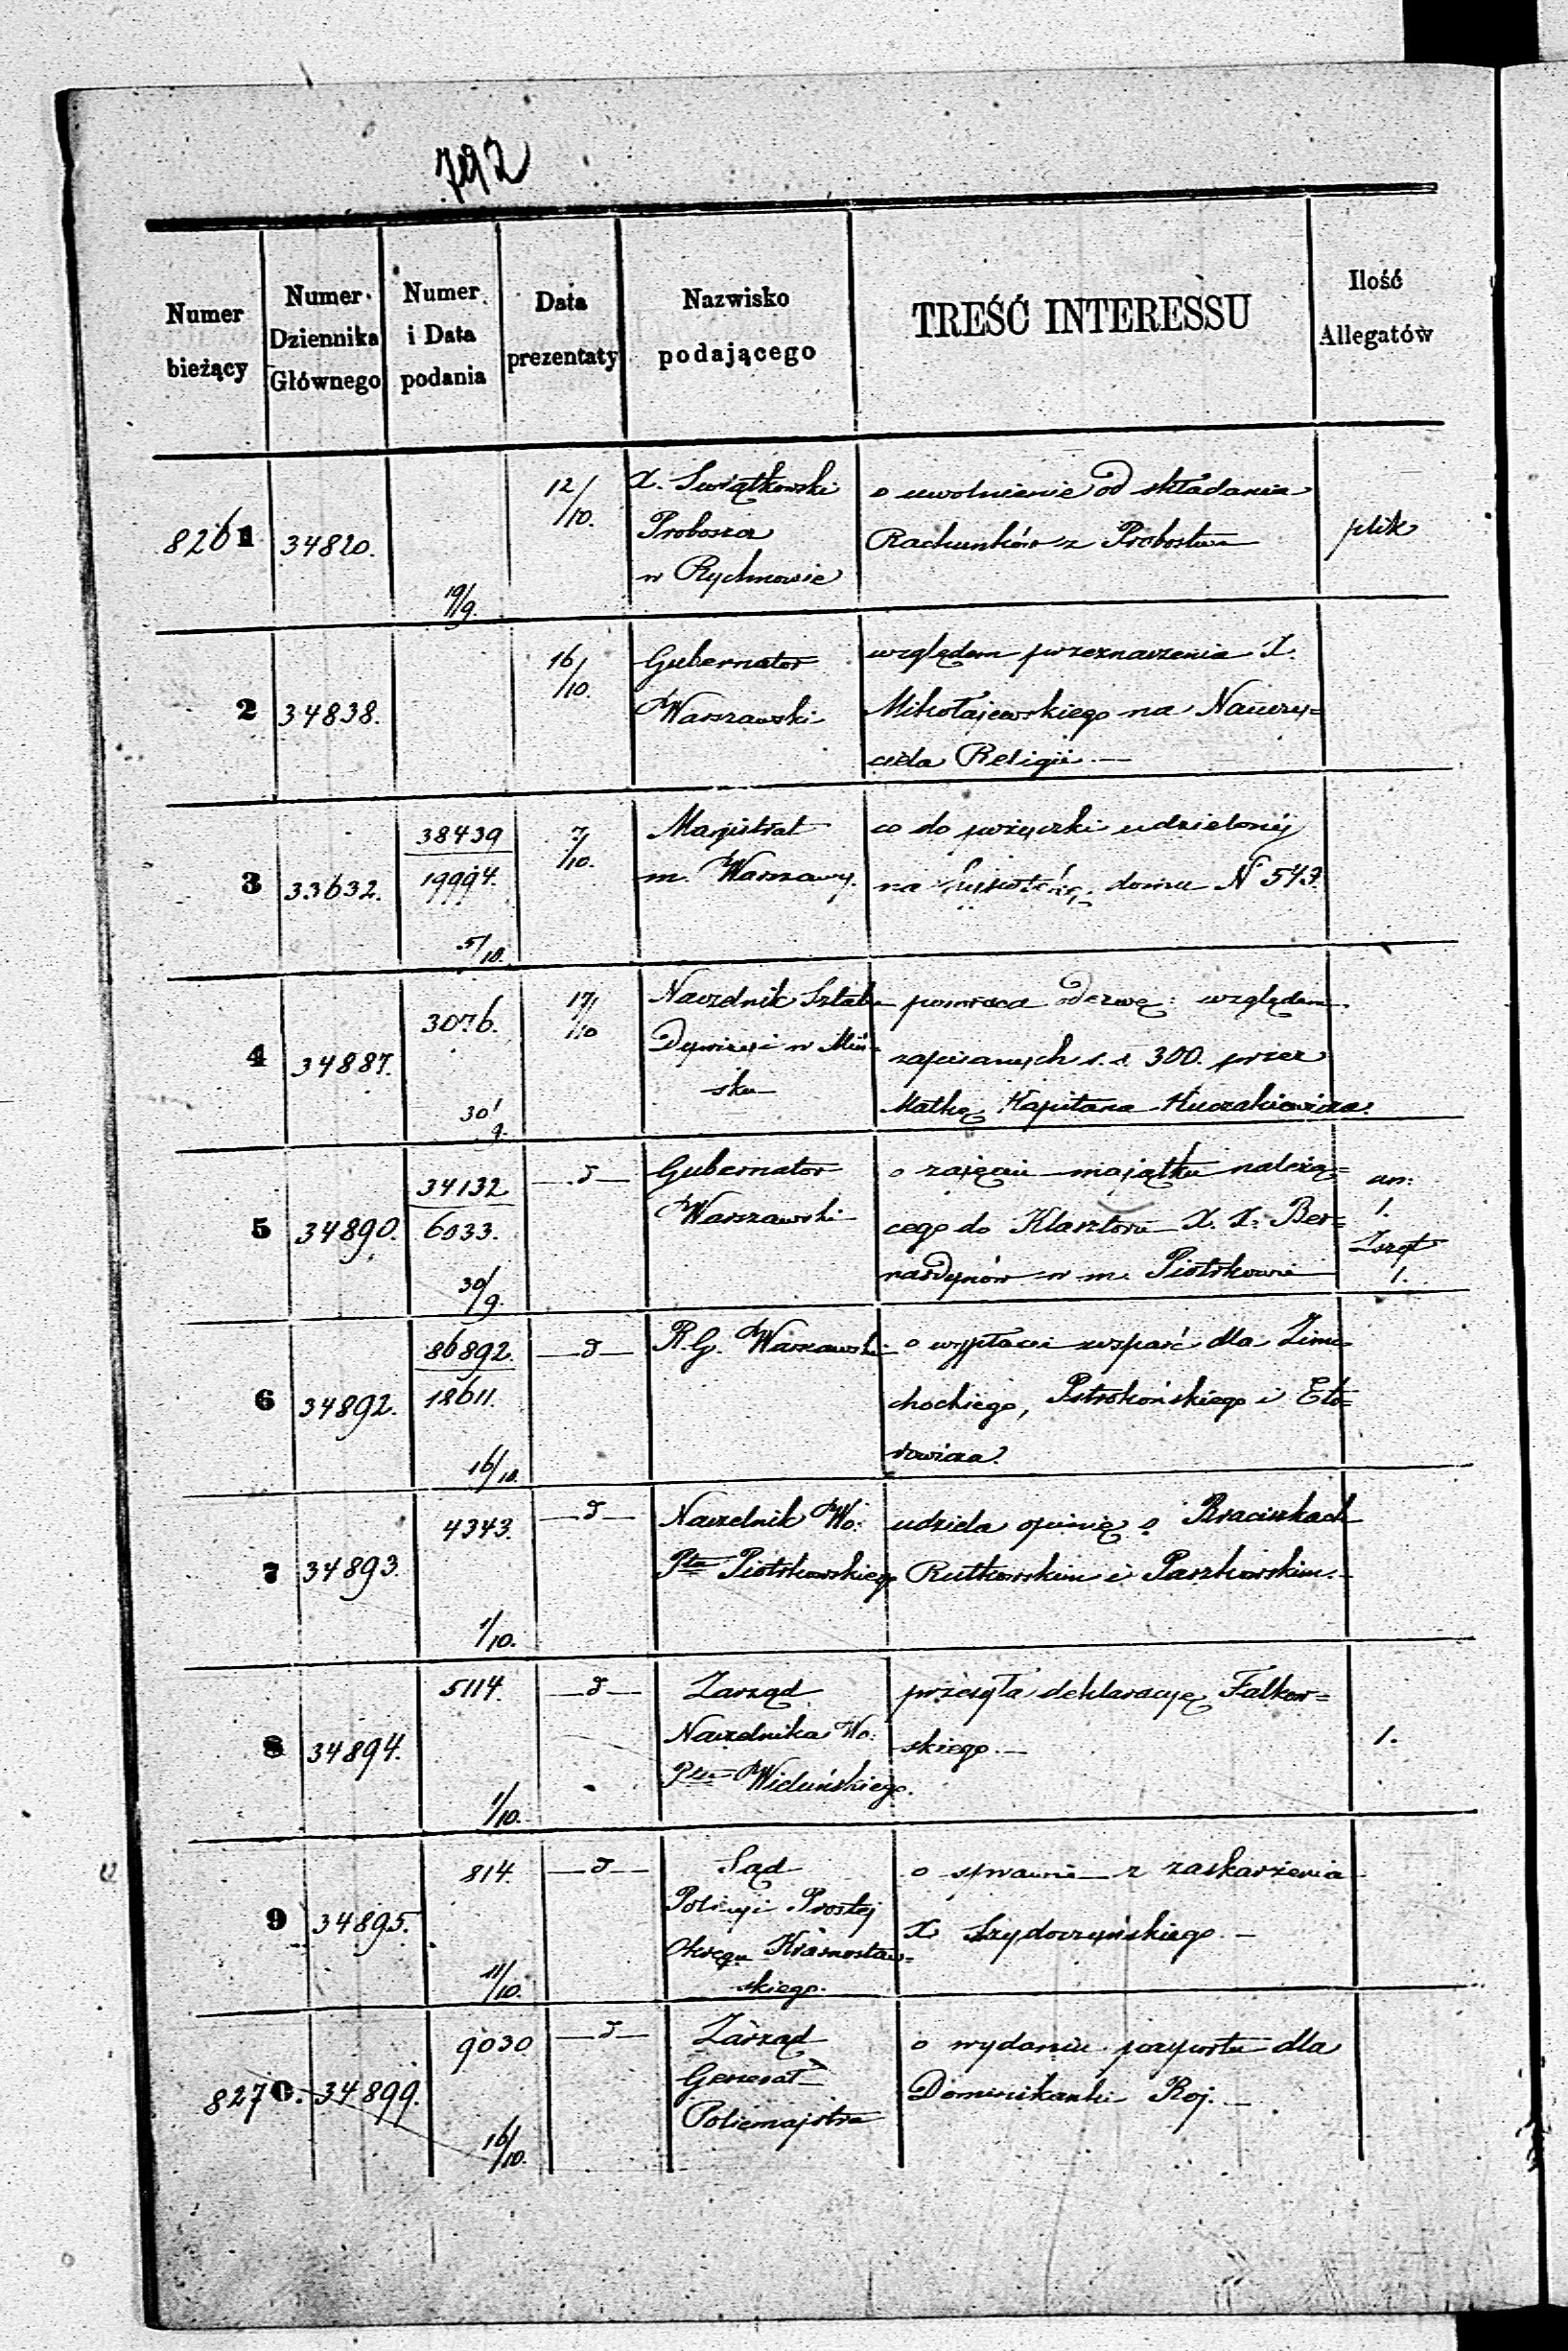 792
Numer bieżący
Numer Dziennika Głównego
Numer i Data podania
Data prezentaty
Nazwisko podającego
TREŚĆ INTERESSU
Ilość Allegatów
8261
34820.
19/9.
12/10.
X. Swiątkowski
Proboszcz
w Rychnowie
o uwolnienie od składania
Rachunków z Probostwa
plik
2
34838.
16/10.
Gubernator
Warszawski
względem przeznaczenia X.
Mikołajewskiego na Nauczy=
ciela Religii. —
3
33632.
38439
19994.
5/10.
7/10.
Magistrat
m. Warszawy.
co do pożyczki udzielonéj
na domu N 543.
4
34887.
3076.
30/9.
17/10
Naczelnik Sztabu
Dywizyi w Miń=
sku
ponawia odezwę względem
zapisanych r. s. 300. przez
Matkę Kapitana
5
34890.
34132
6033.
30/9.
— d —
Gubernator
Warszawski
o zajęciu majątku należą=
cego do Klasztoru X. X. Ber=
nardynów w m. Piotrkowie
an:
1.
1.
6
34892.
86892.
18611.
16/10.
— d —
R. G. Warszawski
o wypłacie wsparć dla Zimo
chockiego, Pstrokońskiego i
7
34893.
4343.
1/10.
— d —
Naczelnik Wo:
Ptu Piotrkowskiego
udziela opinię o Braciszkach
Rutkowskim i Paszkowskim. —
8
34894.
5114.
1/10.
— d —
Zarząd
Naczelnika Wo:
Ptu Wieluńskiego.
przesyła deklaracyę Falkow=
skiego. —
1.
9
34895.
814.
11/10.
— d —
Sąd
Policyi Prostej
Okręgu Krasnostaw=
skiego.
o sprawie z zaskarżenia
X. Szydoczyńskiego. —
8270.
34899.
9030
16/10.
— d —
Zarząd
Generał
Policmajstra
o wydaniu paszportu dla
Dominikanki Roj. —